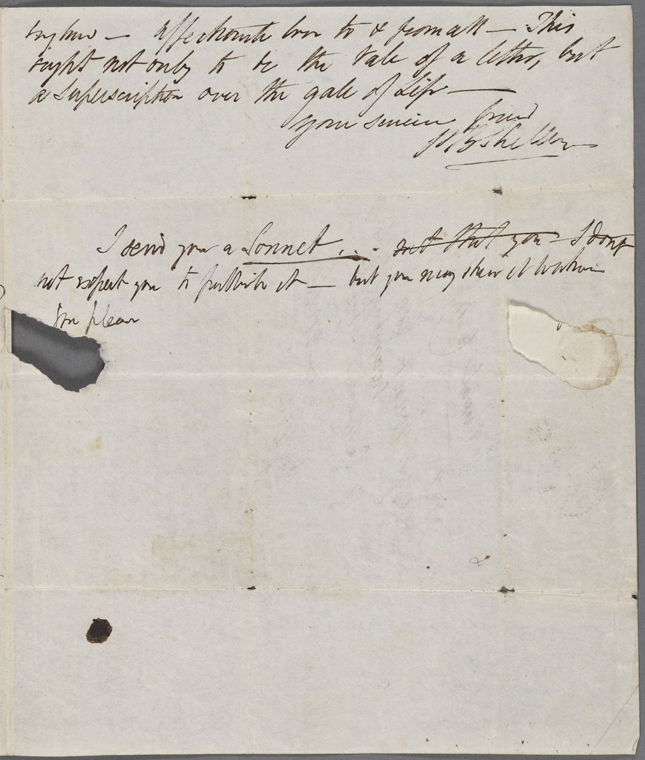 affectionate love to & from all — This
ought not only to be the Vale of a letter, but
a superscription over the gate of Life —
Your sincere friend
PBShelley
I send you a Sonnet . . . not that you – I dont
not expect you to publish it — but you may shew it to whom
you please